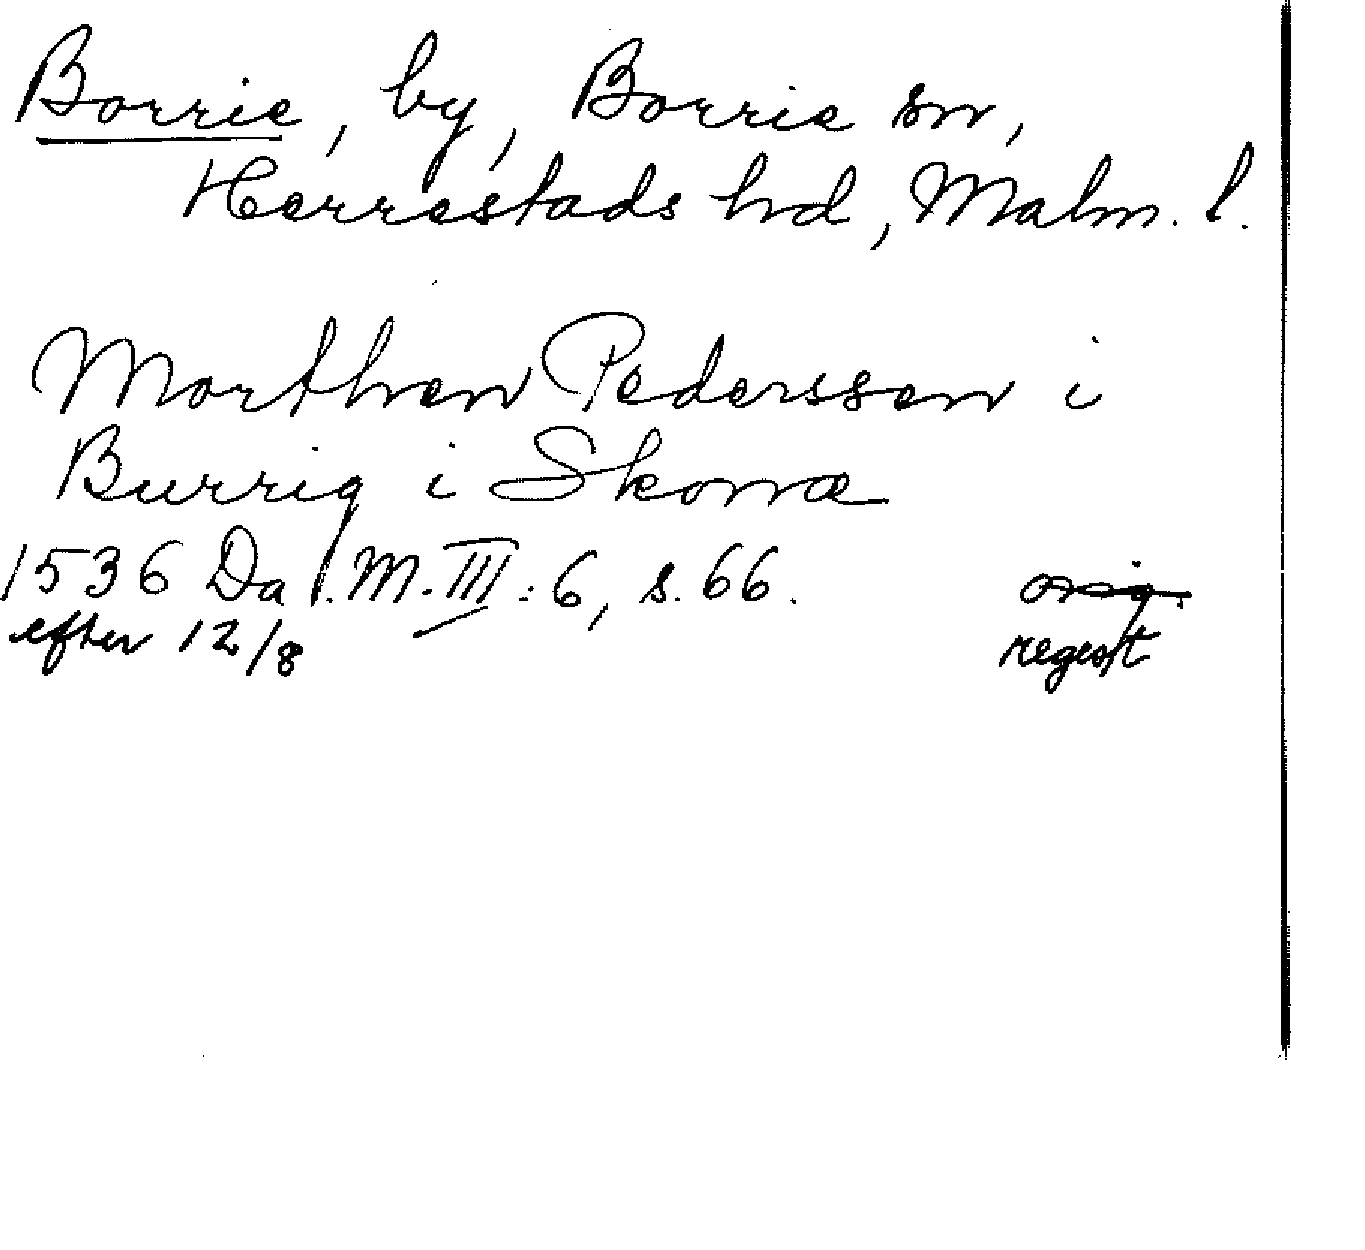 Borrie, by, Borrie sn,
Herrestads hd, Malm. l.
Morthen Pederssen i
Burrig i Skonæ
1536 Da. M. III: 6, s. 66. orig.
efter 12/8 regest